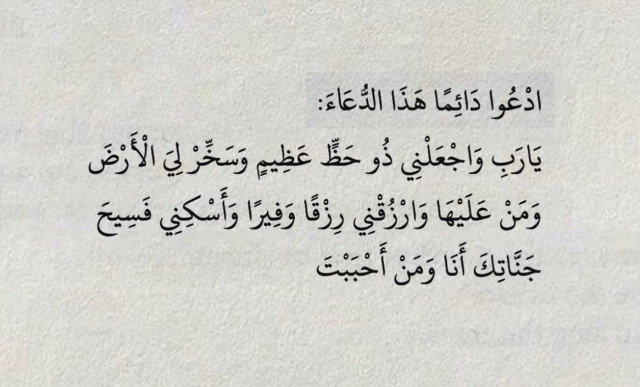 ادْعُوا دَائِمًا هَذَا الدُّعَاءَ:
يَارَبِ وَاجْعَلْنِي ذُو حَظٍّ عَظِيمٍ وَسَخِّرْ لِيَ الْأَرْضَ
وَمَنْ عَلَيْهَا وَارْزُقْنِي رِزْقًا وَفِيرًا وَأَسْكِنِي فَسِيحَ
جَنَّاتِكَ أَنَا وَمَنْ أَحْبَبْتَ